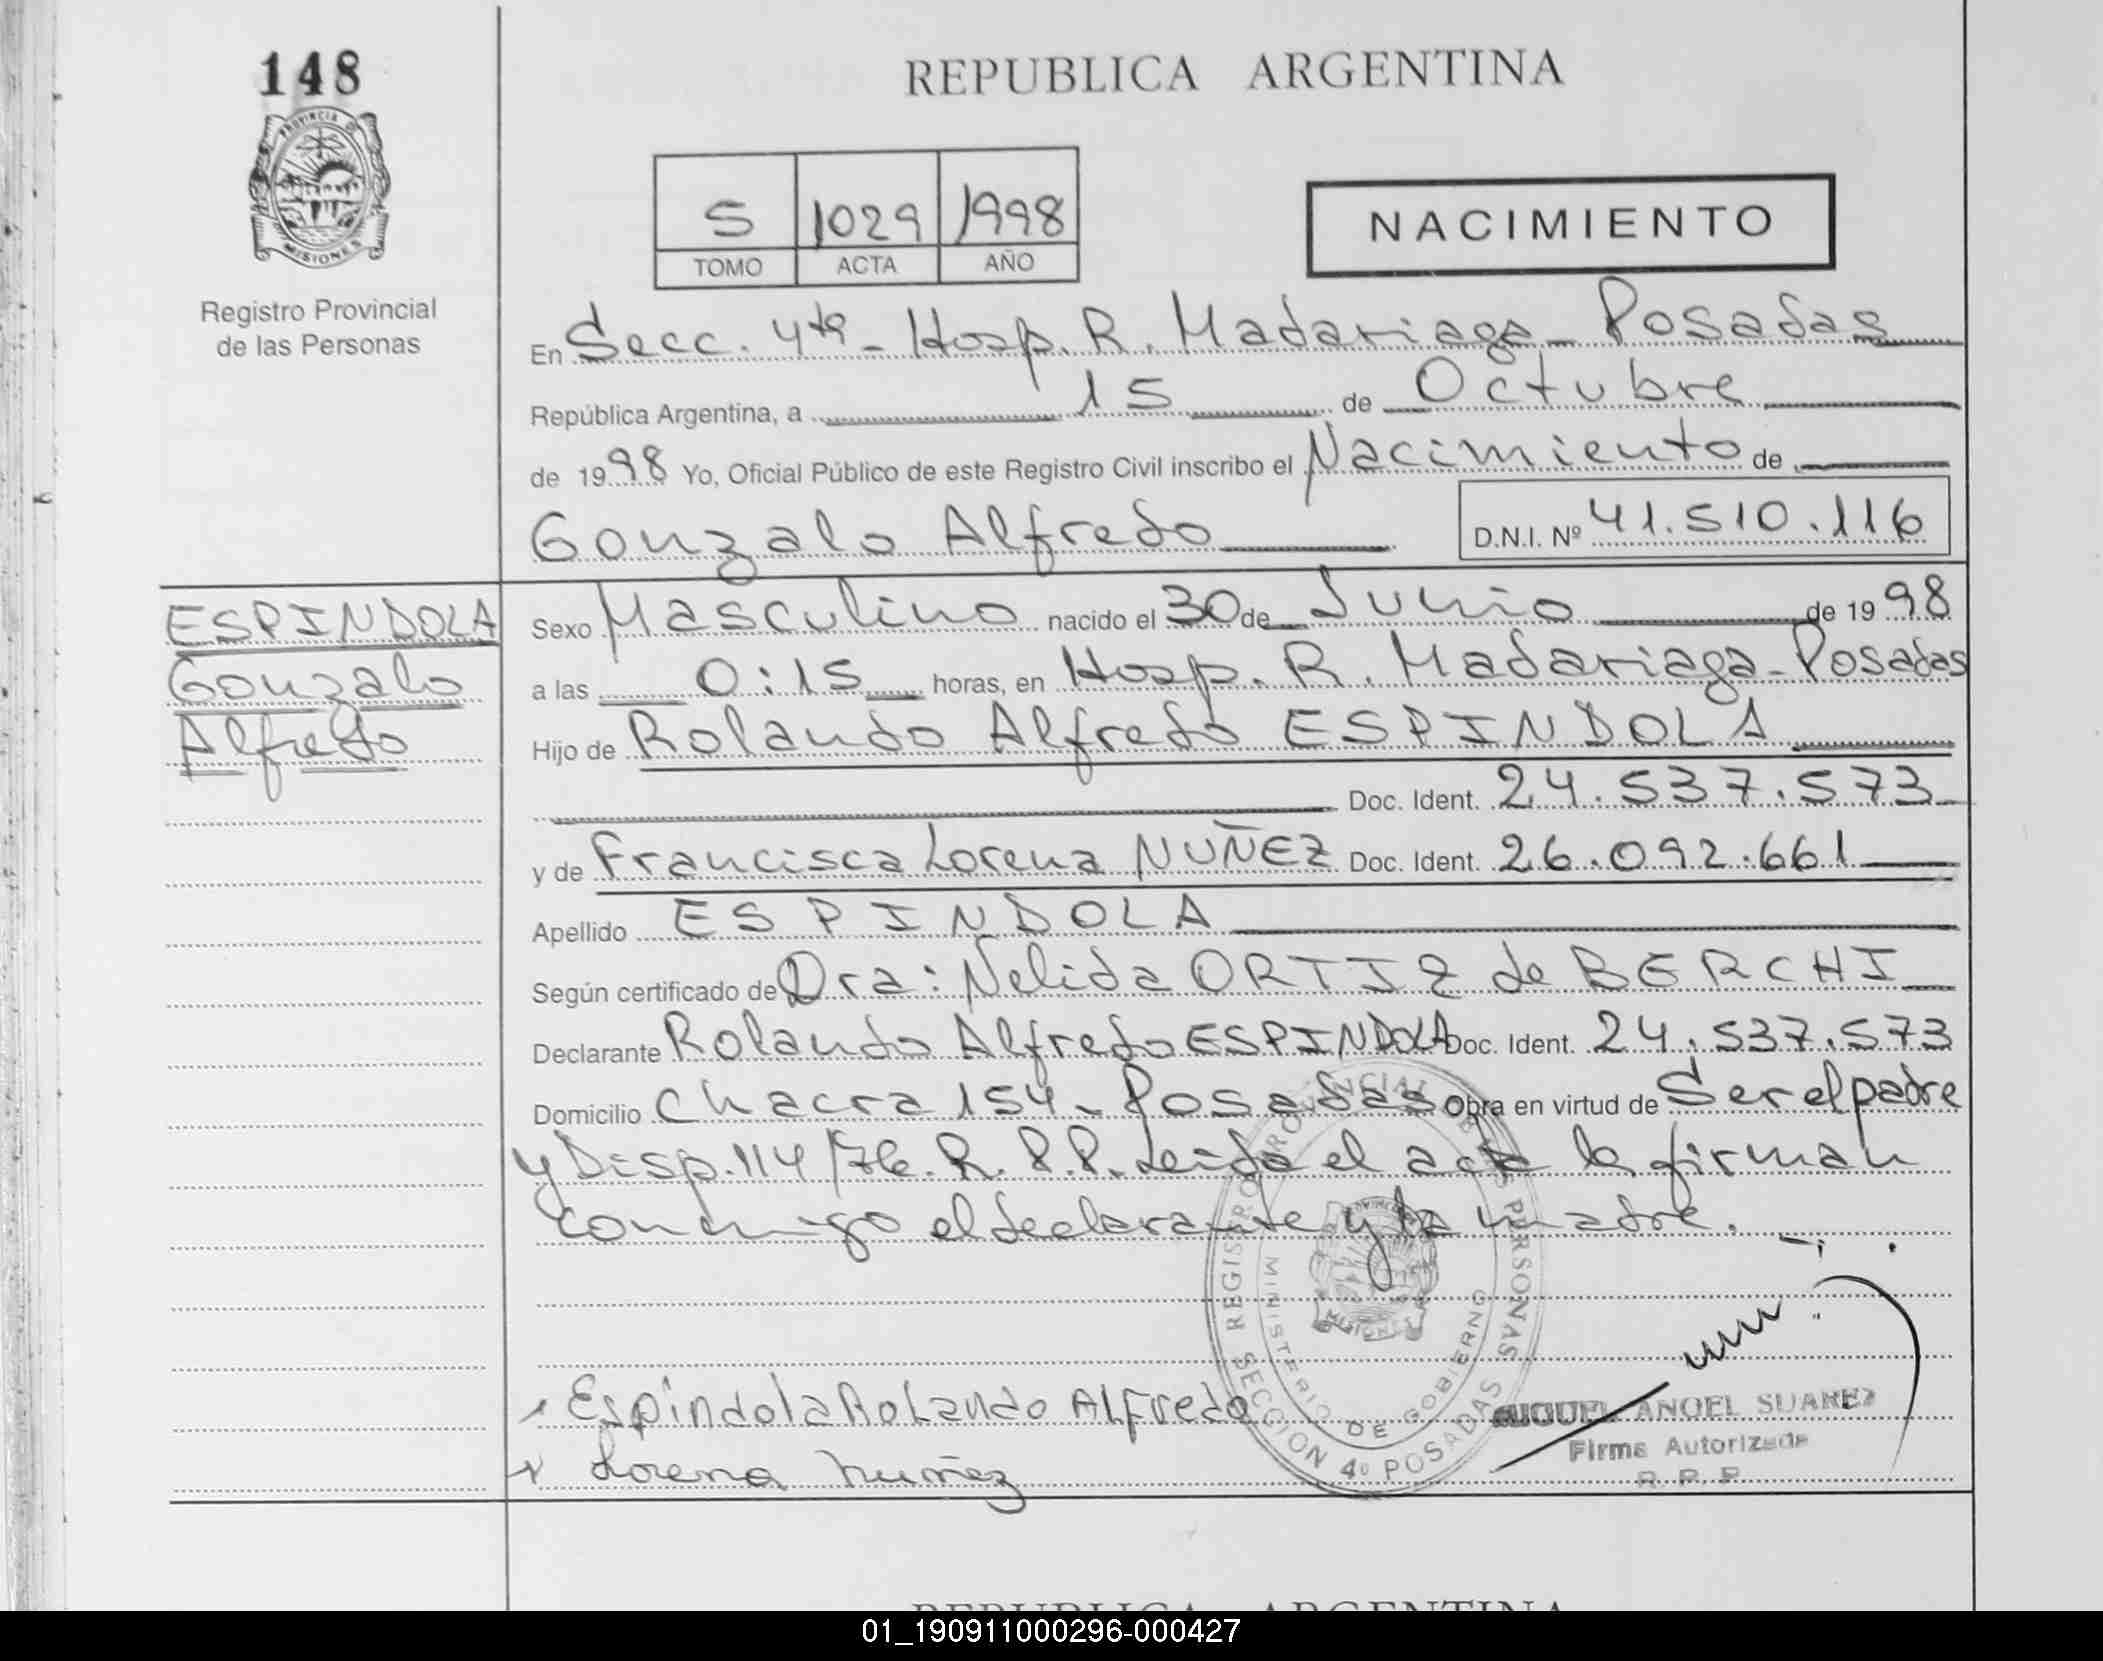 148
PROVINCIA DE
MISIONES
Registro Provincial
de las Personas
REPUBLICA ARGENTINA
5 1029 1998
TOMO ACTA AÑO
NACIMIENTO
En Secc. 4ta - Hosp. R. Madariaga - Posadas
República Argentina, a 15 de Octubre
de 1998 Yo, Oficial Público de este Registro Civil inscribo el Nacimiento de
Gonzalo Alfredo D.N.I. Nº 41.510.116
ESPINDOLA
Gonzalo
Alfredo
Sexo Masculino nacido el 30 de Junio de 1998
a las 0:15 horas, en Hosp. R. Madariaga - Posadas
Hijo de Rolando Alfredo ESPINDOLA
Doc. Ident. 24.537.573
y de Francisca Lorena NUÑEZ Doc. Ident. 26.092.661
Apellido ESPINDOLA
Según certificado de Dra: Nelida ORTIZ de BERCHI
Declarante Rolando Alfredo ESPINDOLA Doc. Ident. 24.537.573
Domicilio Chacra 154 - Posadas Obra en virtud de Ser el padre
y Disp. 114/76. R.P.P. Leida el acta la firman
conmigo el declarante y la madre.
REGISTRO PROVINCIAL DE LAS PERSONAS
MINISTERIO DE GOBIERNO
SECCION 4º POSADAS
Espindola Rolando Alfredo
Lorena Nuñez
MIGUEL ANGEL SUAREZ
Firma Autorizada
R. P. P.
REPUBLICA ARGENTINA
01_190911000296-000427